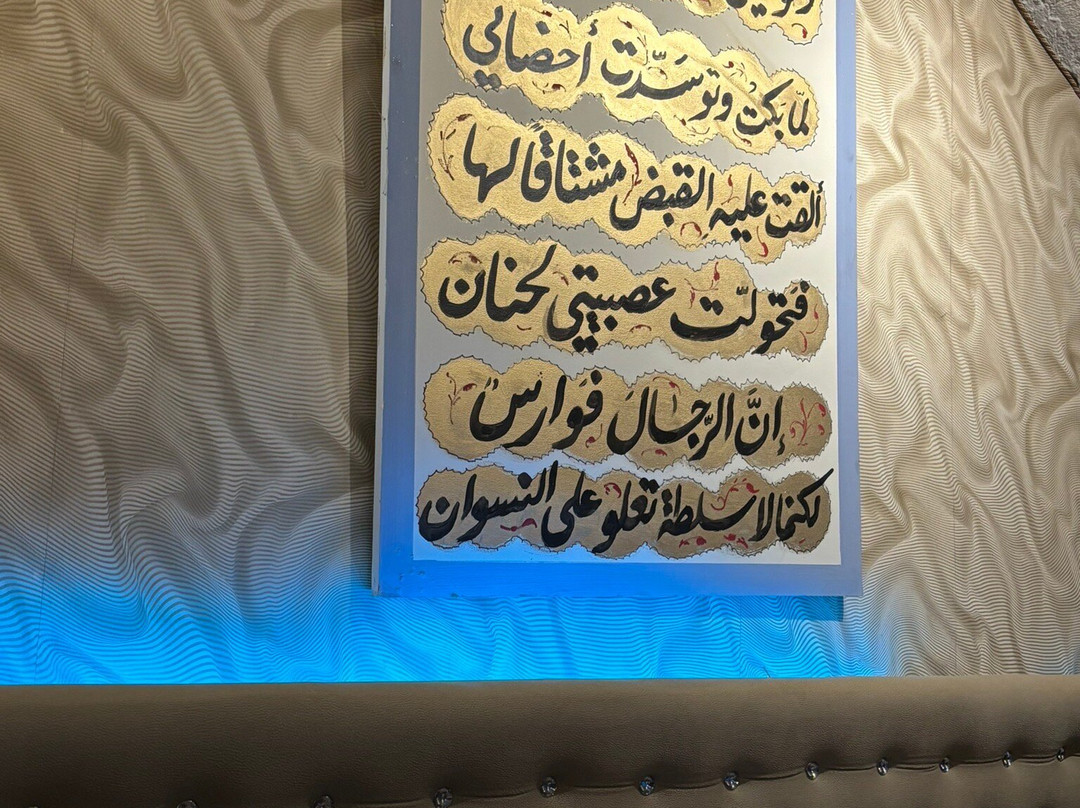 لمّا بكت وتوسَدّت أحضاني
ألقت عليه القبض مشتاقًا لها
فتحولّت عصبيتي لحنان
إنَّ الرّجالَ فَوارس
لكنما لا سلطة تعلو على النسوان